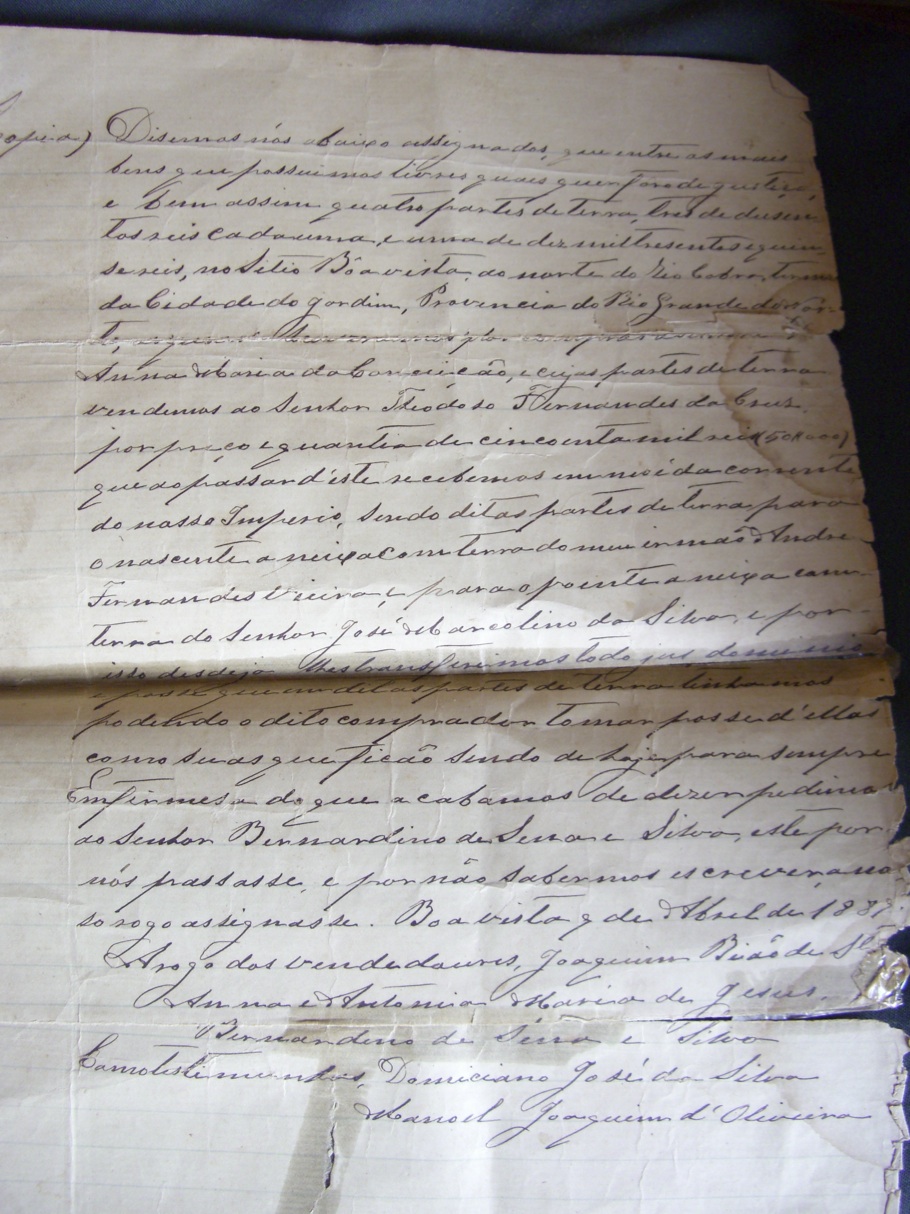 Copia) Disemos nós abaixo assignados, que entre os mais
bens que possuimos livres quais quer fôro de justiça,
e bem assim quatro partes de terra, tres de dusen-
tos reis cada uma, e uma de dez mil tresentos e quin-
se reis, no Sitio Bôa vista, ao norte do Rio Cobra, termo
da Cidade do Jardim, Provincia do Rio Grande do Nor-
te,
Anna Maria da Conceicão, e cujas partes de terra
vendemos ao Senhor Theodoso Fernandes da Cruz,
por preço e quantia de cincoenta mil reis (50$000)
que ao passar d'éste recebemos em moéda corrente
do nosso Imperio, sendo ditas partes de terra para
o nascente aneixa com terra do meu irmaõ Andre
Fernandes Vieira, e para o poente aneixa com
terra do Senhor José Marcolino da Silva, e por
isso desde já lhes transferimos todo jus, dominio
e posse que em ditas partes de terra tinhamos
podendo o dito comprador tomar posse d'ellas
como suas que ficão sendo de hoje para sempre
Em firmesa do que acabamos de dizer pedimos
ao Senhor Bernardino de Sena e Silva, este por
nós passasse, e por não sabermos escrever, a nos-
so rogo assignasse. Boa vista 9 de Abril de 188
A rogo dos vendedoures, Joaquim Bião de Sta
Anna e Antonia Maria de Jesus.
Bernardino de Séna e Silva
Como testimunhas, Domiciano José da Silva
Manoel Joaquim d'Oliveira